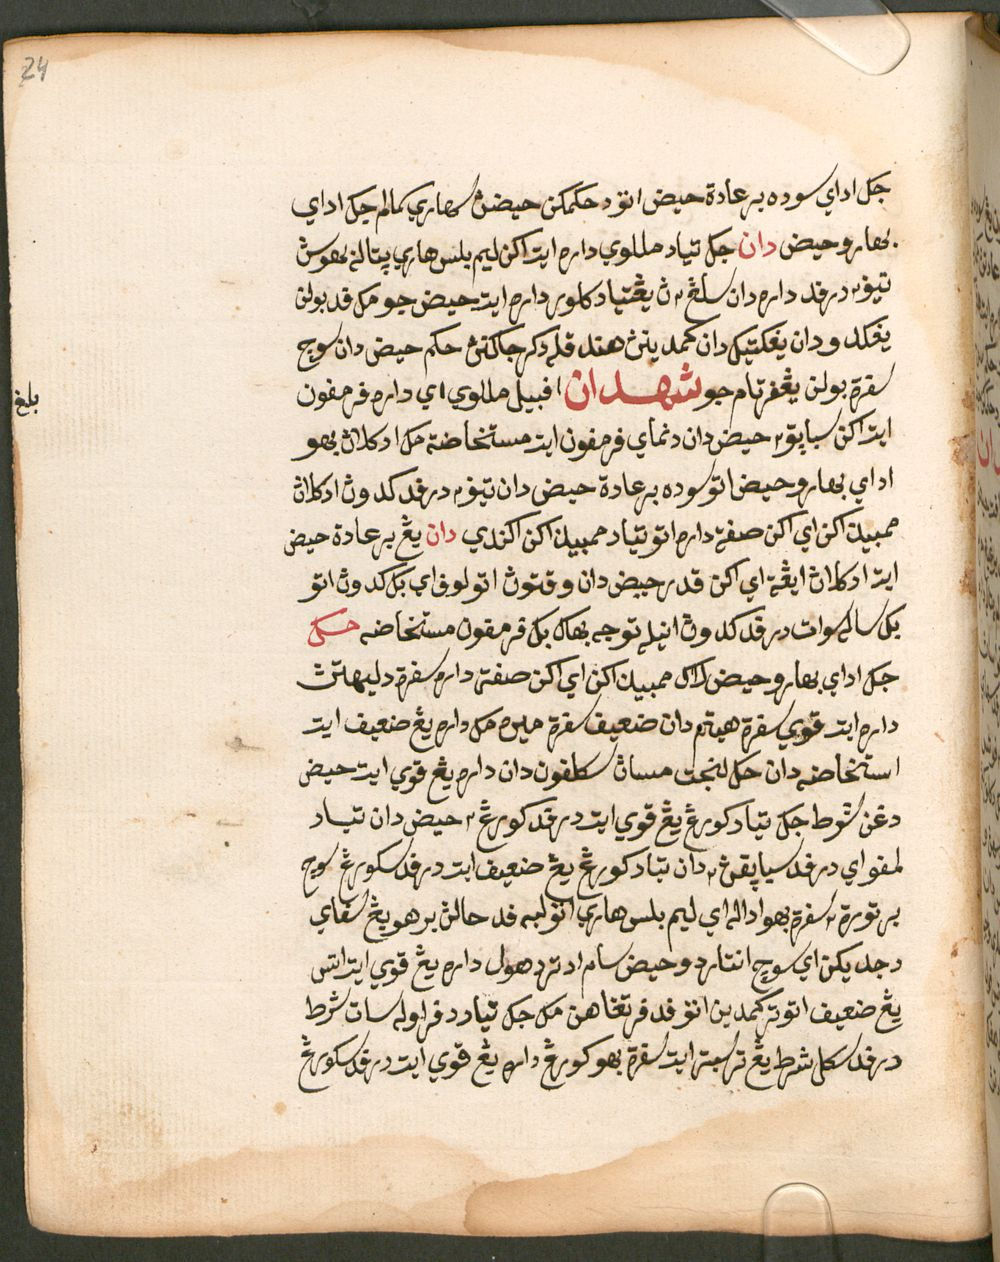 24
جك اداي سوده برعادة حيض اتو دحكمكن حيضڽ سهاري كمالم جك اداي
بهارو حيض دان جك تياد مللوي داره ايت اكن ليم بلس هاري پتاله بهوسڽ
تيڠݢ درفد داره دان سلڠ ٢ ڽ يڠتياد كلور داره ايت حيض جو مك فد بولن
يڠكدو دان يڠكتيݢ دان كمدينڽ هندقله دكرجاكنڽ حكم حيض دان سوچ
سفرة بولن يڠفرتام جو شهدان افبيل مللوي اي داره فرمفون
ايت اكن سباپق٢ حيض دان دنماي فرمفون ايت مستحاضه مك ادكلاڽ بهو
اداي بهارو حيض اتو سوده برعادة حيض دان تيڠݢ درفد كدوڽ ادكلاڽ
ممبيداكن اي اكن صفة داره اتو تياد ممبيداكن اكندي دان يڠ برعادة حيض
ايت ادكلاڽ ايڠة اي اكن قدر حيض دان وقتوڽ اتو لوفا اي بݢ كدوڽ اتو
بݢ ساله سوات درفد كدوڽ انيله توجه بهاݢ بݢ فرمفون مستحاضه مك
جك اداي بهارو حيض لاݢ ممبيداكن اي اكن صفة داره سفرة دليهتڽ
داره ايت قوي سفرة هيتم دان ضعيف سفرة ميره مك داره يڠ ضعيف ايت
استحاضه دان جك لنجت مساڽ سكلفون دان داره يڠ قوي ايت حيض
دڠن شرط جك تياد كورڠ يڠ قوي ايت درفد كورڠ ٢ حيض دان تياد
لمفو اي درفد سباپقڽ ٢ دان تياد كورڠ يڠ ضعيف ايت درفد سكورڠ سوچ
برتورة ٢ سفرة بهو اداله اي ليم بلس هاري اتو لبه فد حالڽ برهوبڠ سفاي
دجديكن اي سوچ انتارا دو حيض سام اد تردهول داره يڠ قوي ايت اتس
يڠ ضعيف اتو تركمدين اتو فد فرتڠاهن مك جك تياد دفراوله سات شرط
درفد سكل شرط يڠ ترسبة ايت سفرة بهو كورڠ داره يڠ قوي ايت درفد سكورڠ
بلغ